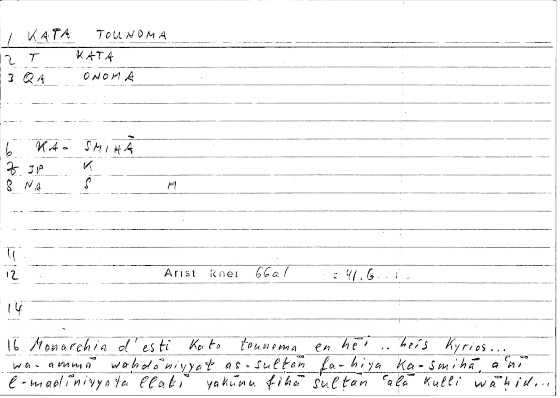 1 KATA TOUNOMA
2 T KATA
3 QA ONOMA
6 KA- SMIHĀ
7 JP K
8 NA S M
11
12 Arist Rhet 66a1 : 41.6
14
16 Monarchia d'esti Kata tounoma en hēi .. heis Kyrios...
wa-ammā waḥdāniyyat as-sulṭān fa-hiya Ka-smihā, a'nī
l-madīniyyata llatī yakūnu fīhā sulṭān 'alā kulli wāḥid...